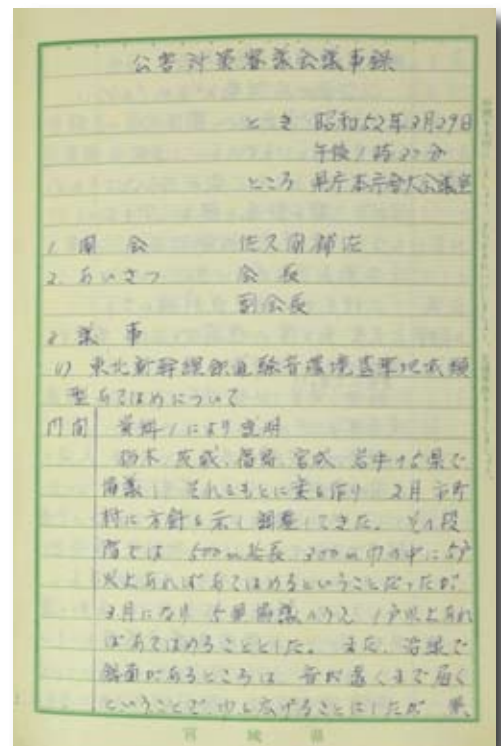 公害対策審議会議事録
とき 昭和52年3月29日
午後1時30分
ところ 県庁本庁舎大会議室
1. 開会 佐久間補佐
2. あいさつ 会長
副会長
3 議事
1) 東北新幹線鉄道騒音環境基準地域類
型あてはめについて
門間 資料1により説明
栃木 茨城、福島、宮城、岩手の5県で
協議し、それをもとに案を作り 2月 市町
村に方針を示し調整してきた。その段
階では 500m延長 300m巾の中に5戸
以上あればあてはめるということだったが
3月になり 5県協議のうえ 1戸以上あれ
ばあてはめることとした。また、沿線で
があるところは 音が遠くまで届く
ということで、巾を広げることにしたが 県、
宮城県